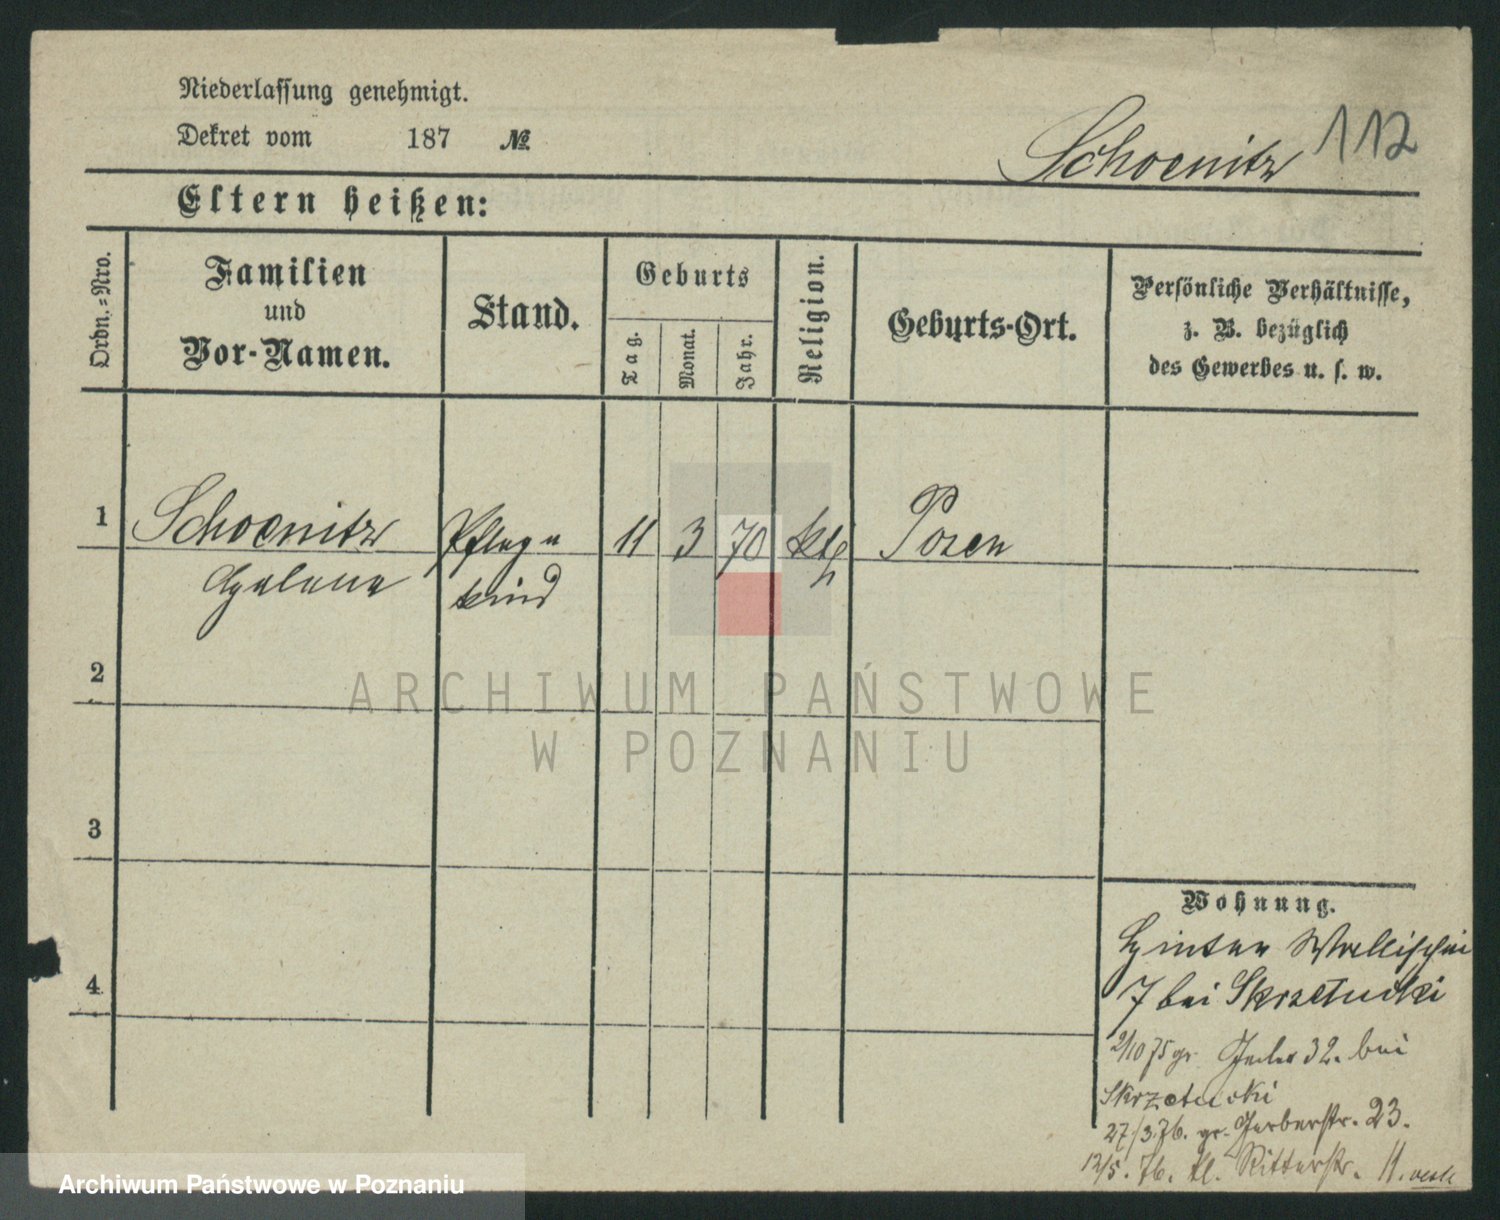 Niederlassung genehmigt.
Dekret vom 187 №
Schoenitz 112
Eltern heißen:
Ordn.-Nro.
Familien
und
Vor-Namen.
Stand.
Geburts
Tag.
Monat.
Jahr.
Religion.
Geburts-Ort.
Persönliche Verhältnisse,
z. B. bezüglich
des Gewerbes u. s. w.
1 Schoenitz Pflege 11 3 70 kth Posen
Helene kind
2
3
4
Wohnung.
Hinter Wallischei
7 bei Skrzetucki
2/10 75 gr. 32. bei
Skrzetucki
27/3.76. gr. Gerberstr. 23.
12/5.76. kl. Ritterstr. 11.
ARCHIWUM PAŃSTWOWE
W POZNANIU
Archiwum Państwowe w Poznaniu